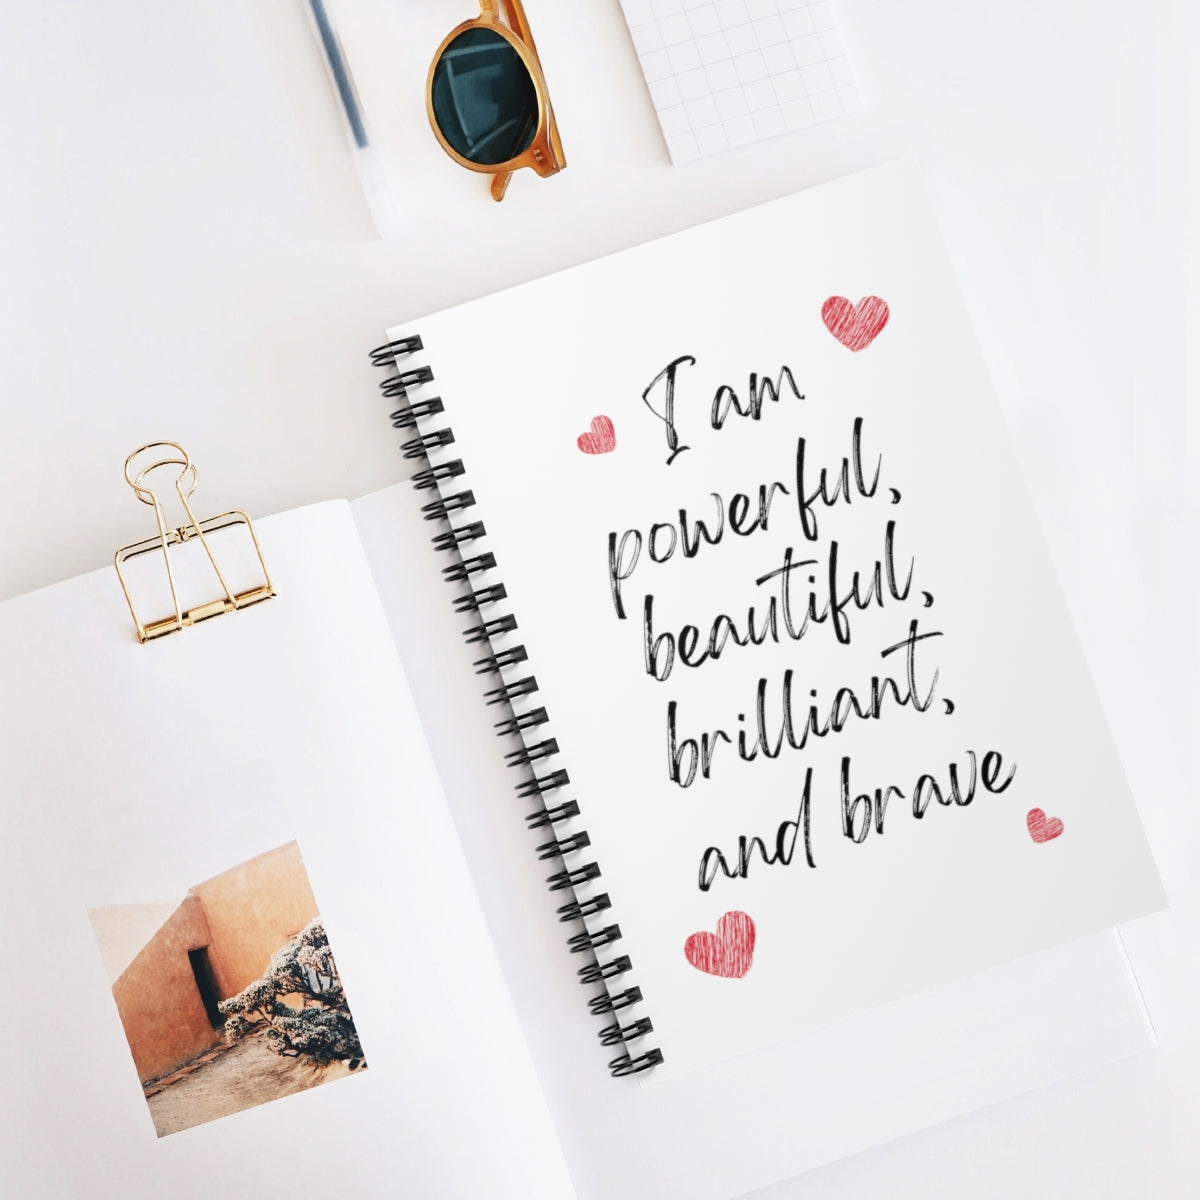 I am
powerful,
beautiful,
brilliant,
and brave